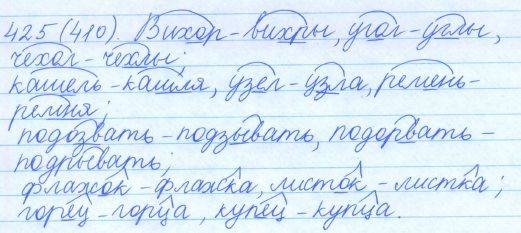 425(410). Вихор-вихры, угол-углы,
чехол-чехлы;
кашель-кашля, узел-узла, ремень-
ремня;
подозвать-подзывать, подорвать-
подрывать;
флажок-флажка, листок-листка;
горец-горца, купец-купца.